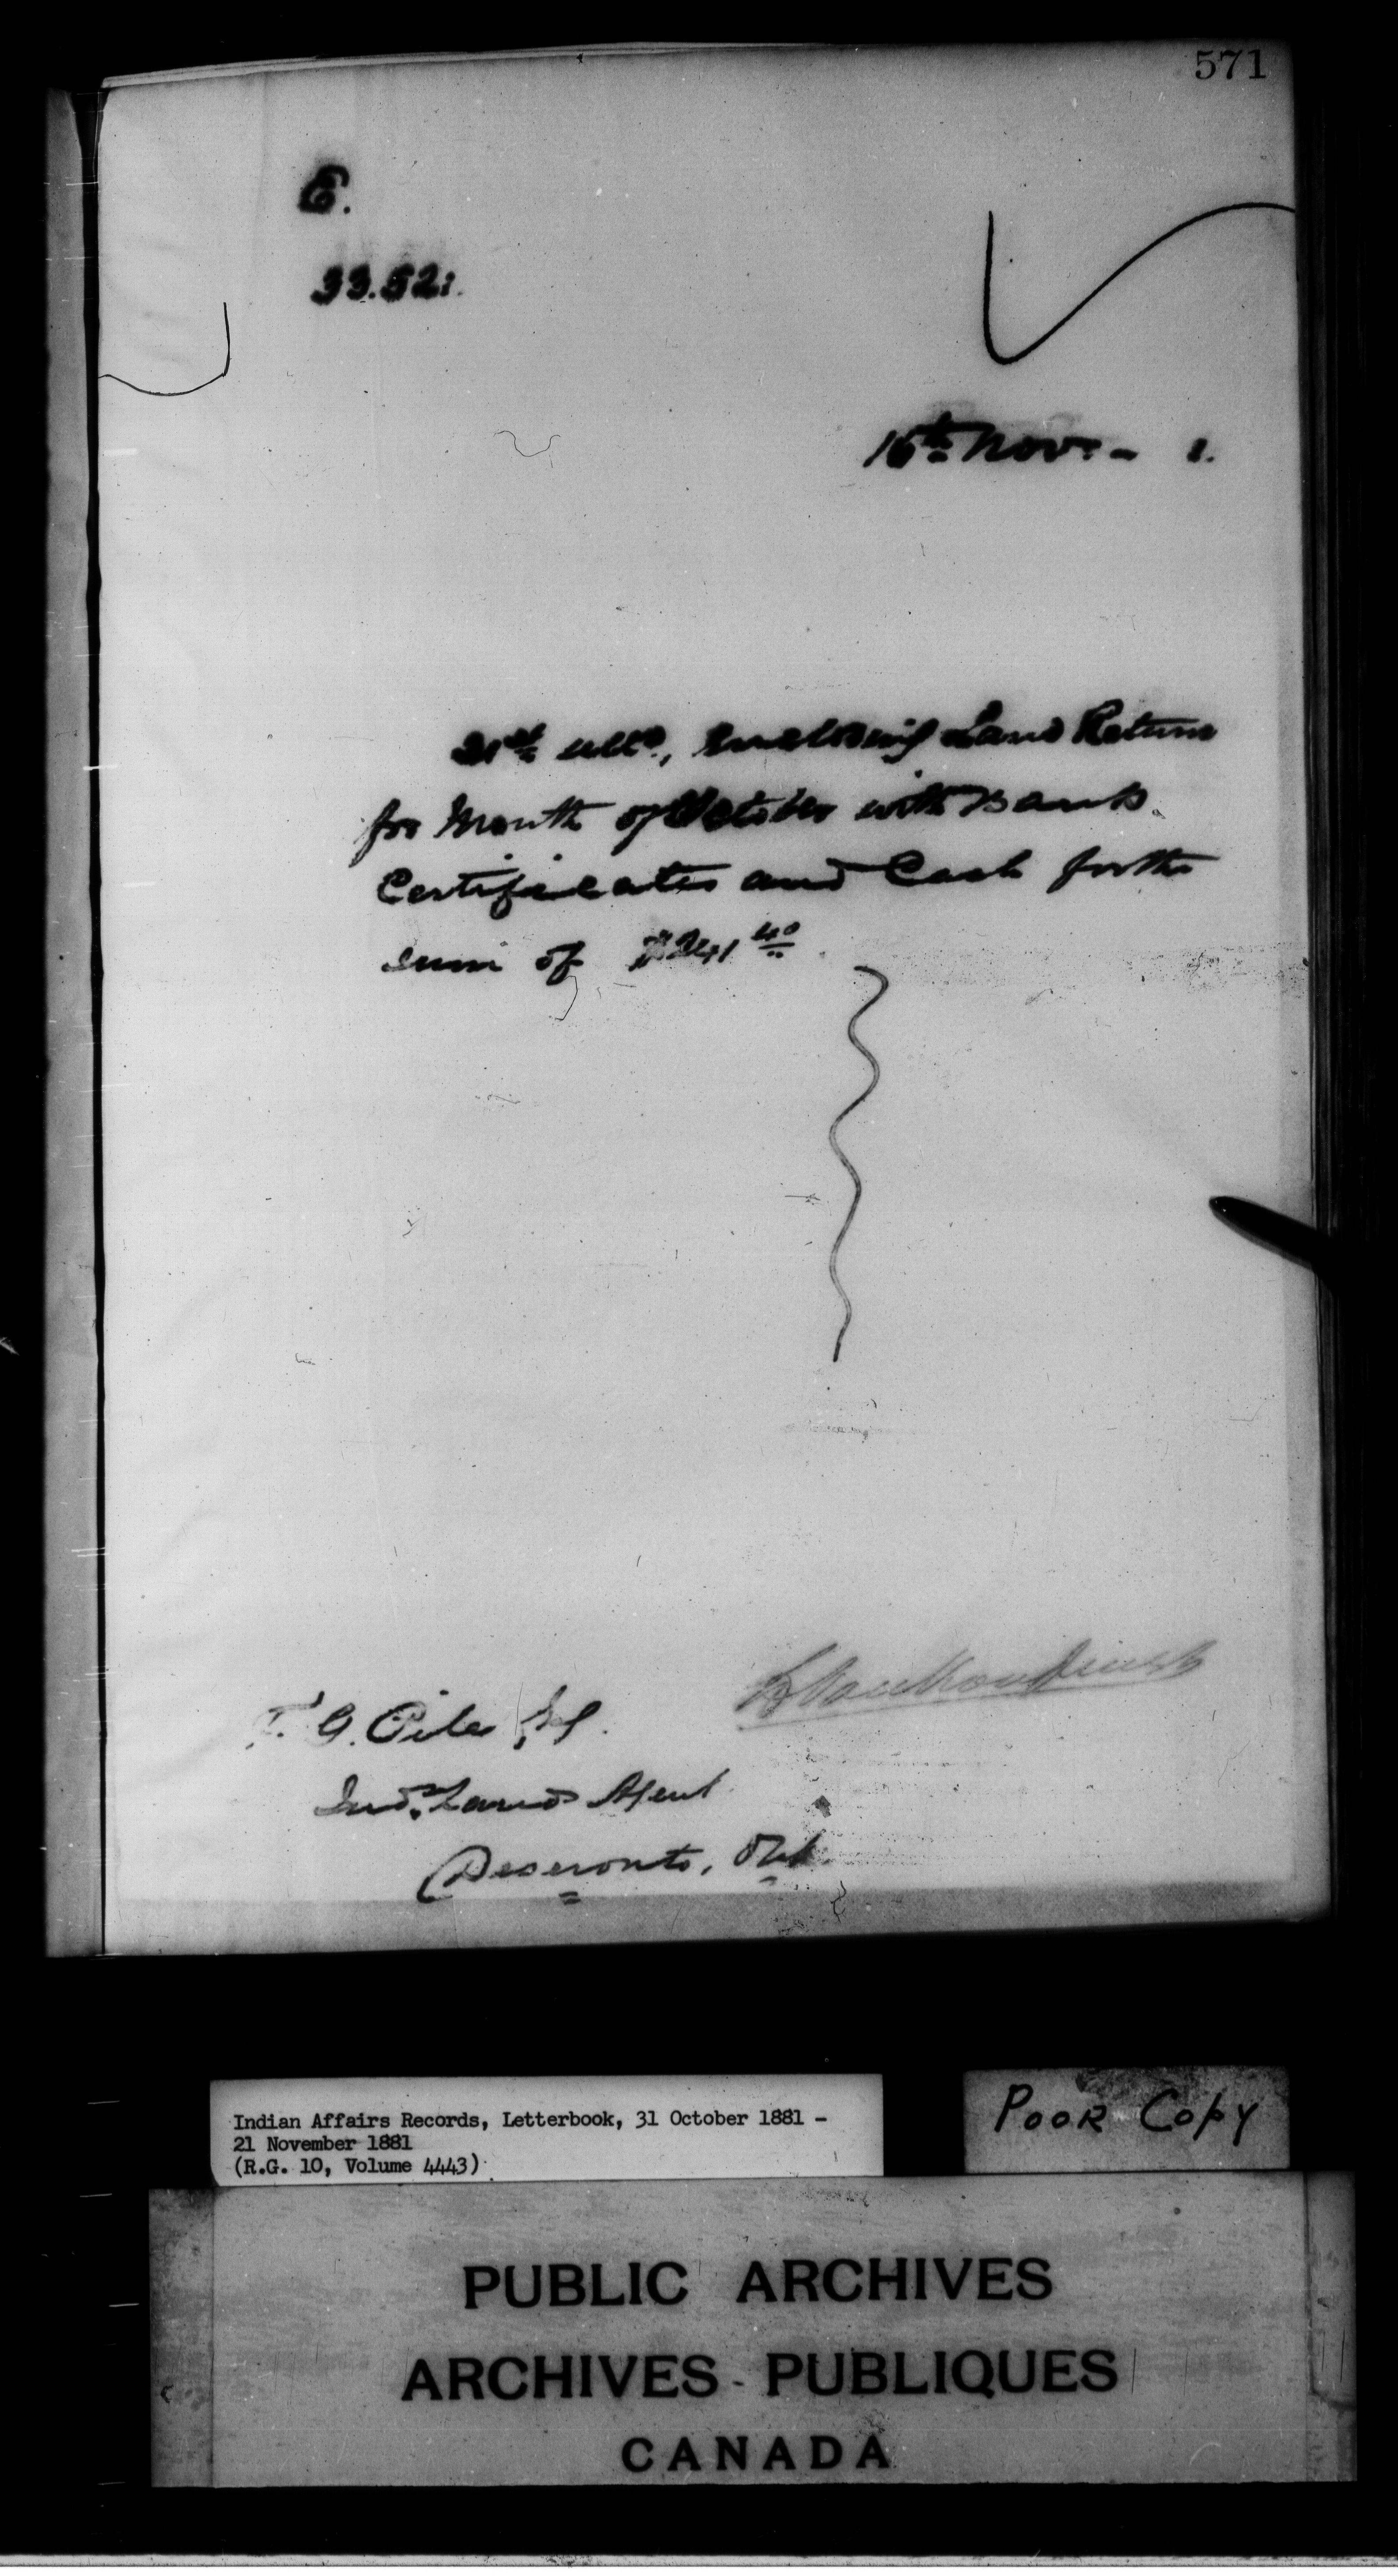 571
E.
33.521.
16th Nov. - 1.
31st ulto, enclosing Land Return
for Month of October with Bank
Certificates and Cash for the
sum of $241 40
L VanKoughnet
T. G. Pile Esq.
Ind. Land Agent
Deseronto, Ont.
Indian Affairs Records, Letterbook, 31 October 1881 -
21 November 1881
(R.G. 10, Volume 4443)
POOR COPY
PUBLIC ARCHIVES
ARCHIVES PUBLIQUES
CANADA